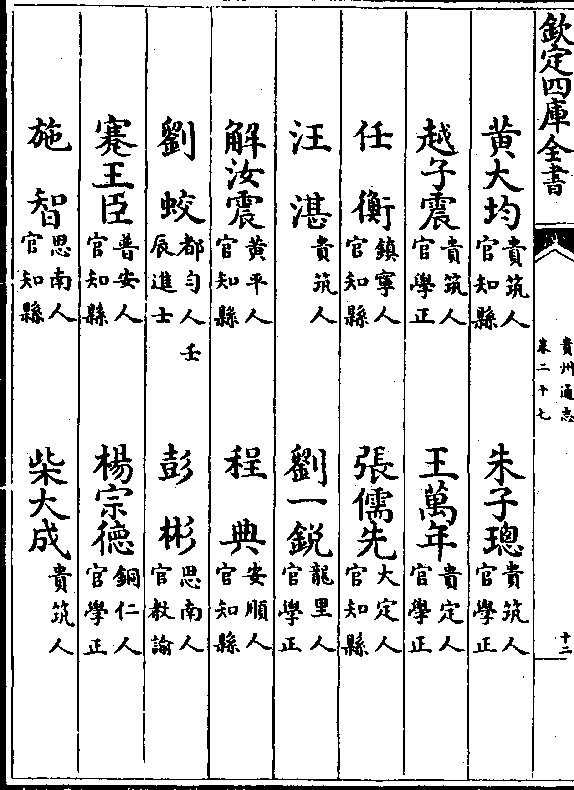 欽定四庫全書
貴州通志
卷二十七
十二
黄大均 貴筑人官知縣 朱子璁 貴筑人官學正
越子震 貴筑人官學正 王萬年 貴定人官學正
任衡 鎮寧人官知縣 張儒先 大定人官知縣
汪湛 貴筑人 劉一鋭 龍里人官學正
解汝震 黄平人官知縣 程典 安順人官知縣
劉蛟 都勻人壬辰進士 彭彬 思南人官教諭
蹇王臣 普安人官知縣 楊宗德 銅仁人官學正
施智 思南人官知縣 柴大成 貴筑人